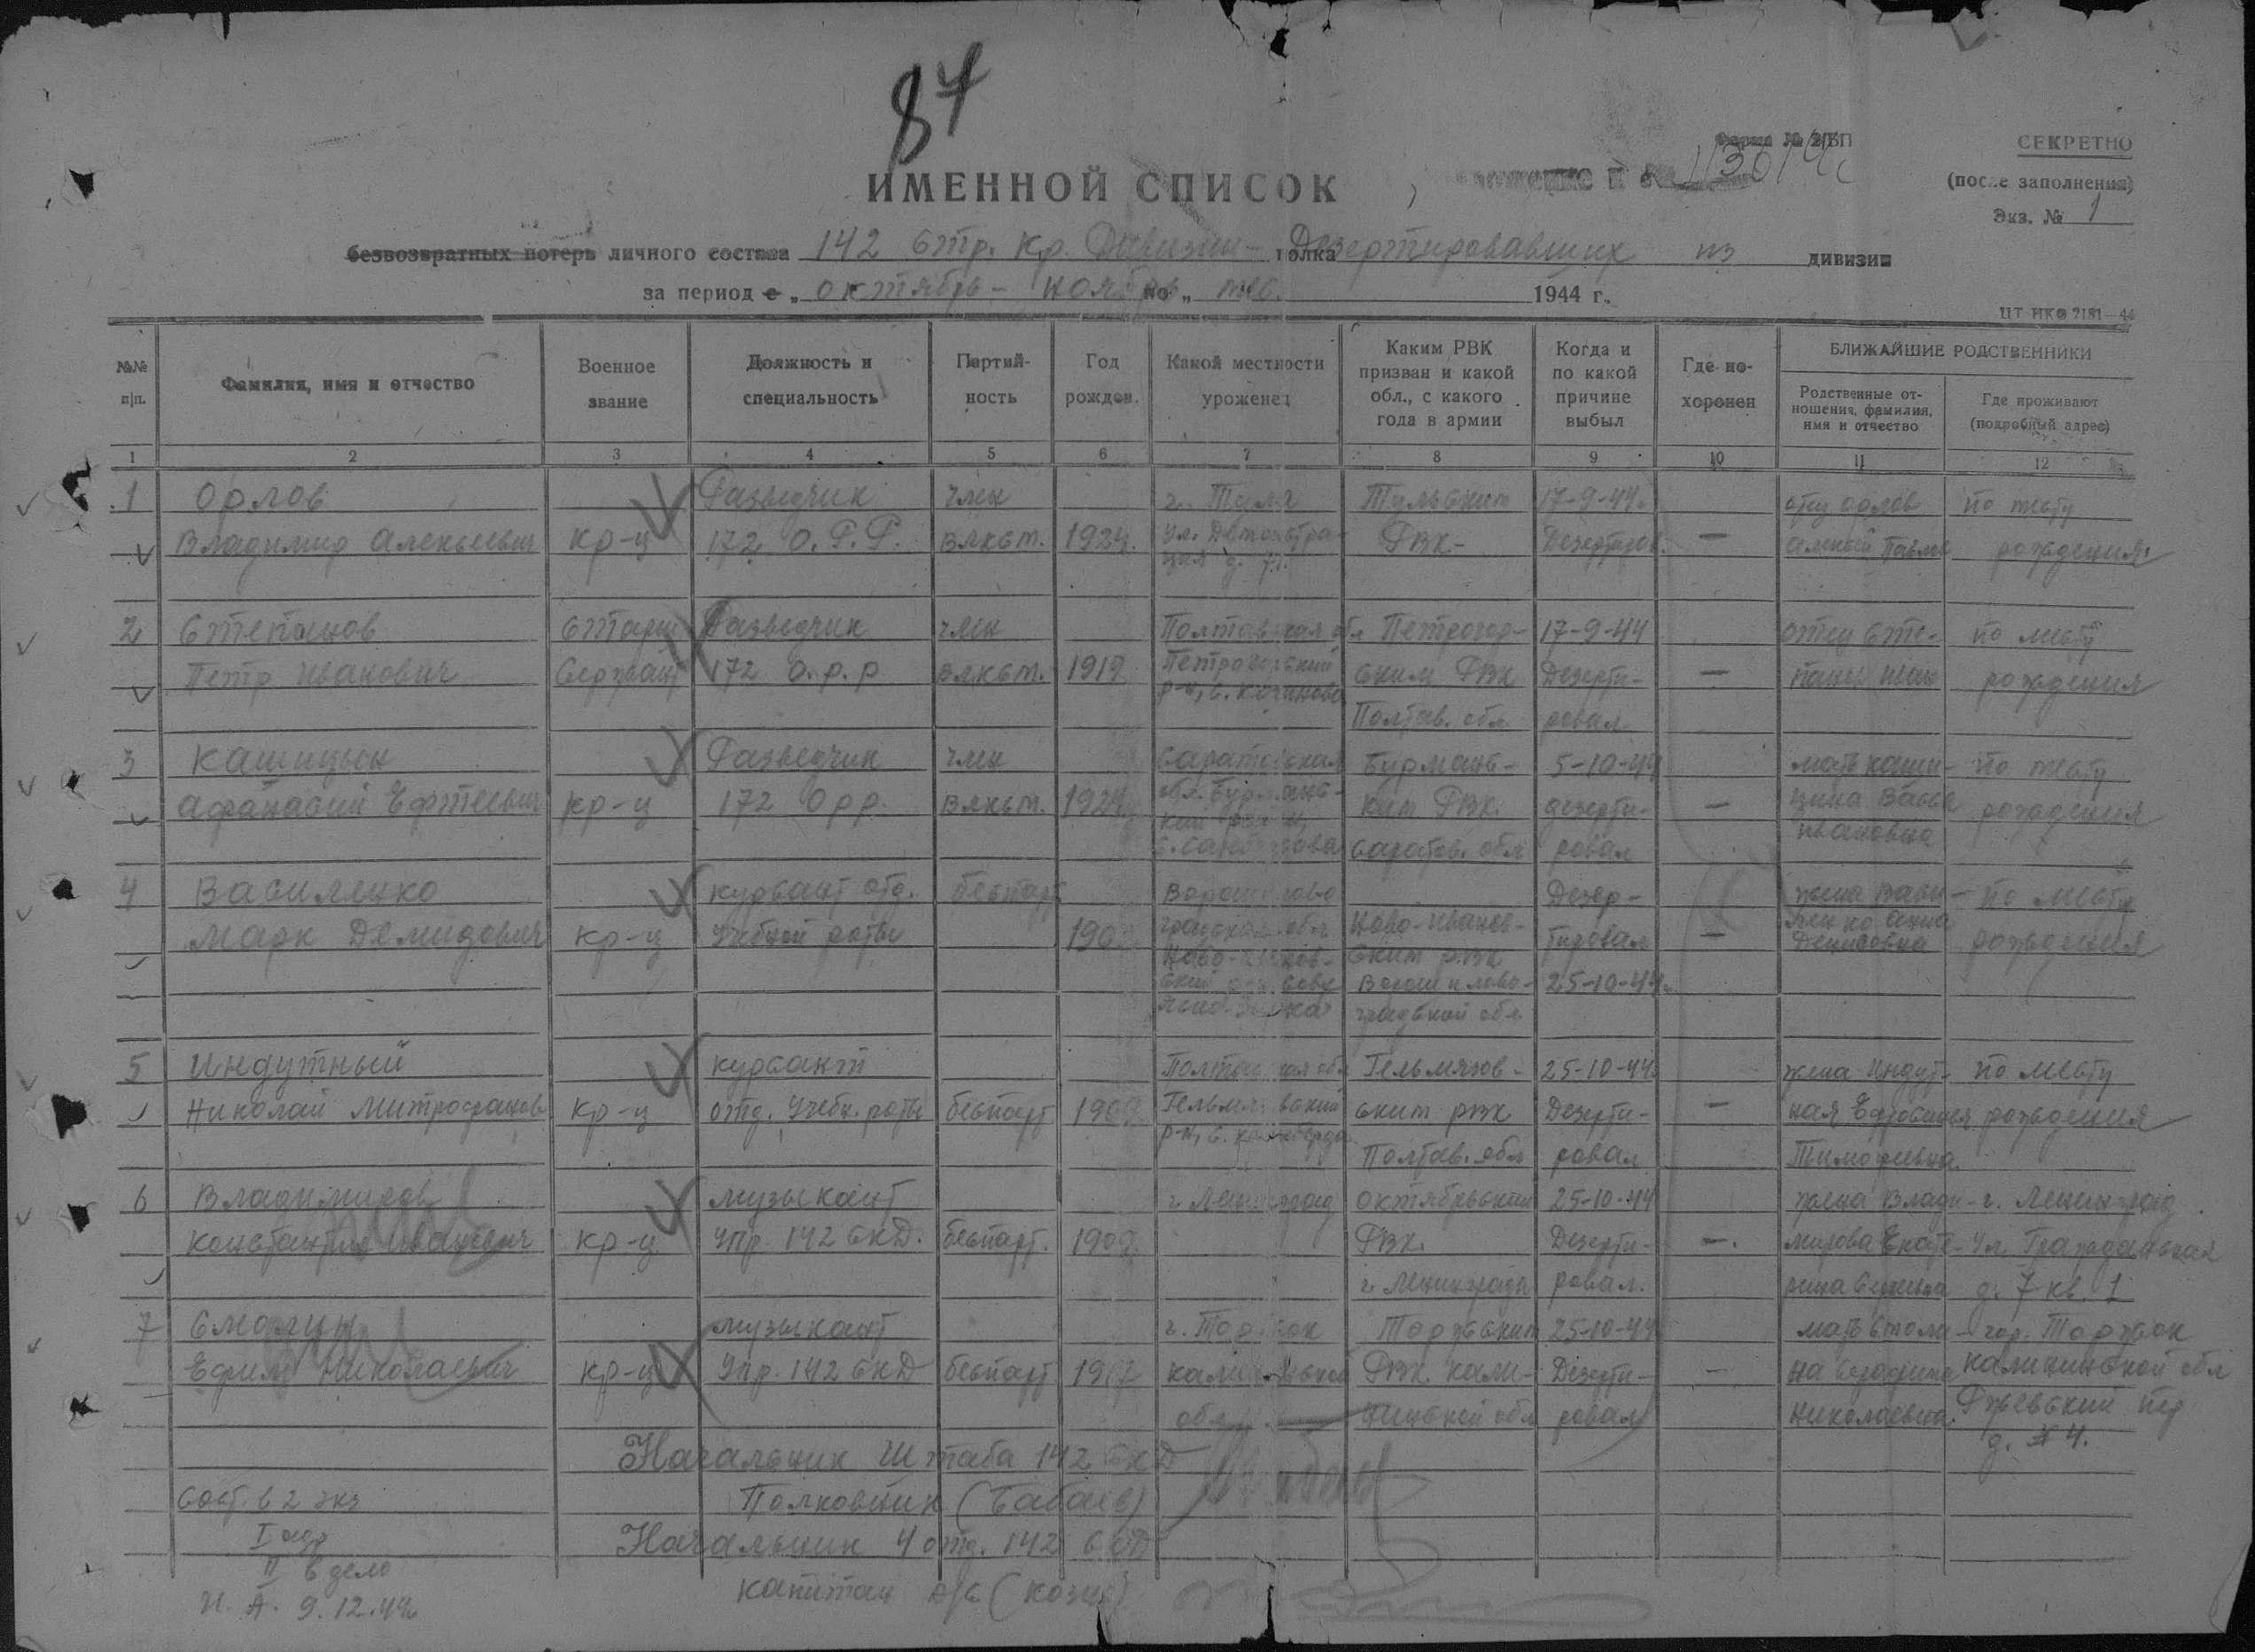 87
Форма № 2/БП
СЕКРЕТНО
11361Ч с
(после заполнения)
ИМЕННОЙ СПИСОК
Экз. № 1
безвозвратных потерь личного состава 142 Стр. Кр. Дивизии - полка Дезертировавших из дивизии
за период с „ октябрь - ноябрь по „ м-ц. 1944 г.
ЦТ НКО 2181—44
№№ п|п.
Фамилия, имя и отчество
Военное звание
Должность и специальность
Партий-ность
Год рожден.
Какой местности уроженец
Каким РВК призван и какой обл., с какого года в армии
Когда и по какой причине выбыл
Где по-хоронен
БЛИЖАЙШИЕ РОДСТВЕННИКИ
Родственные от-ношения, фамилия, имя и отчество
Где проживают (подробный адрес)
1 2 3 4 5 6 7 8 9 10 11 12
1 Орлов Разведчик член г. Тула Тульским 17-9-44г. отец Орлов по месту
Владимир Алексеевич кр-ц 172 О.Р.Р. ВЛКСМ. 1924 ул. Демонстра- РВК- Дезертиров. — Алексей Павлов рождения
ция д. 71.
2 Степанов Старш Разведчик член Полтавская обл Петрогор- 17-9-44 отец Сте- по месту
Петр Иванович Сержант 172 о.р.р ВЛКСМ. 1919 ским РВК Дезерти- — панов Иван рождения
р-н, с.
Полтав. обл. ровал
3 Кашицын Разведчик член Саратовская Бурманс- 5-10-44 мать Каши- по месту
Афанасий кр-ц 172 Орр. ВЛКСМ. 1924 обл. ким РВК. дезерти- — цина рождения
Ивановна
Саратов. обл ровал
4 Василенко курсант отд. беспарт Дезер- жена Васи- по месту
Марк Демидович кр-ц Учебной роты обл Ново-Иванов- тировал — ленко Анна рождения
ским РВК Денисовна
Ворошилово- 25-10-44г.
градской обл
5 Индутный курсант Полтавская обл Гельмязов- 25-10-44 жена Индут- по месту
Николай Митрофанов кр-ц отд. Учебн. роты беспарт ским РВК Дезерти- — ная Ефросинья рождения
р-н, с.
Полтав. обл ровал Тимофеевна.
6 Владимиров музыкант г. Ленинград Октябрьским 25-10-44 жена Влади- г. Ленинград
Константин Иванович кр-ц Упр. 142 СКД. беспарт. 1909. РВК. Дезерти- —. мирова Екате- Ул. Гражданская
г. Ленинграда ровал. рина Сергеевна д. 7 кв. 1
7 Смолин музыкант г. Торжок Торжским 25-10-44 мать Смоли- гор. Торжок
Ефим Николаевич кр-ц Упр. 142 СКД беспарт Калининской РВК Кали- Дезерти- — на Калининской обл
обл. нинской обл ровал Николаевна. Ржевский пер
д. 4.
Начальник Штаба 142 СКД
Сост. в 2 экз Полковник (Бабаев)
I адр Начальник 4 отд. 142 СКД
II в дело
капитан а/с (Козик)
И. А. 9.12.44г